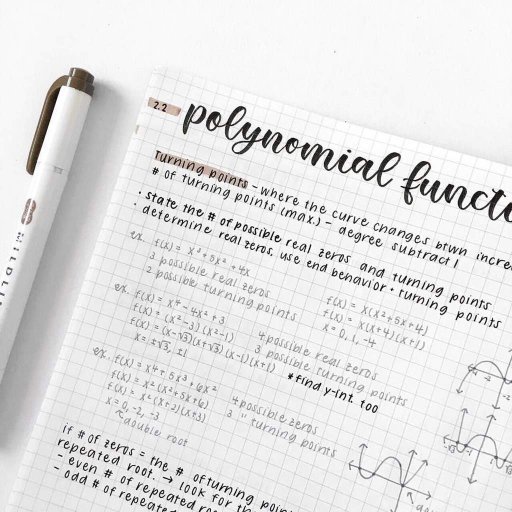 2.2 polynomial functi
Turning points - where the curve changes btwn incre
# of turning points (max.) - degree subtract 1
· state the # of possible real zeros and turning points
· determine real zeros, use end behavior + turning points
ex. f(x) = x³+5x²+4x
3 possible real zeros
2 possible turning points
f(x) = x(x²+5x+4)
f(x) = x(x+4)(x+1)
x = 0, 1, -4
ex. f(x) = x⁴-4x²+3
f(x) = (x²-3)(x²-1)
f(x) = (x-√3)(x+√3)(x-1)(x+1)
x = ±√3, ±1
4 possible real zeros
3 possible turning points
*find y-int. too
ex. f(x) = x⁴+5x³+6x²
f(x) = x²(x²+5x+6)
f(x) = x²(x+2)(x+3)
x = 0, -2, -3
double root
4 possible zeros
3 " turning points
if # of zeros = the # of turning poin
repeated root. → look for th
- even # of repeated roo
- odd # of repeate